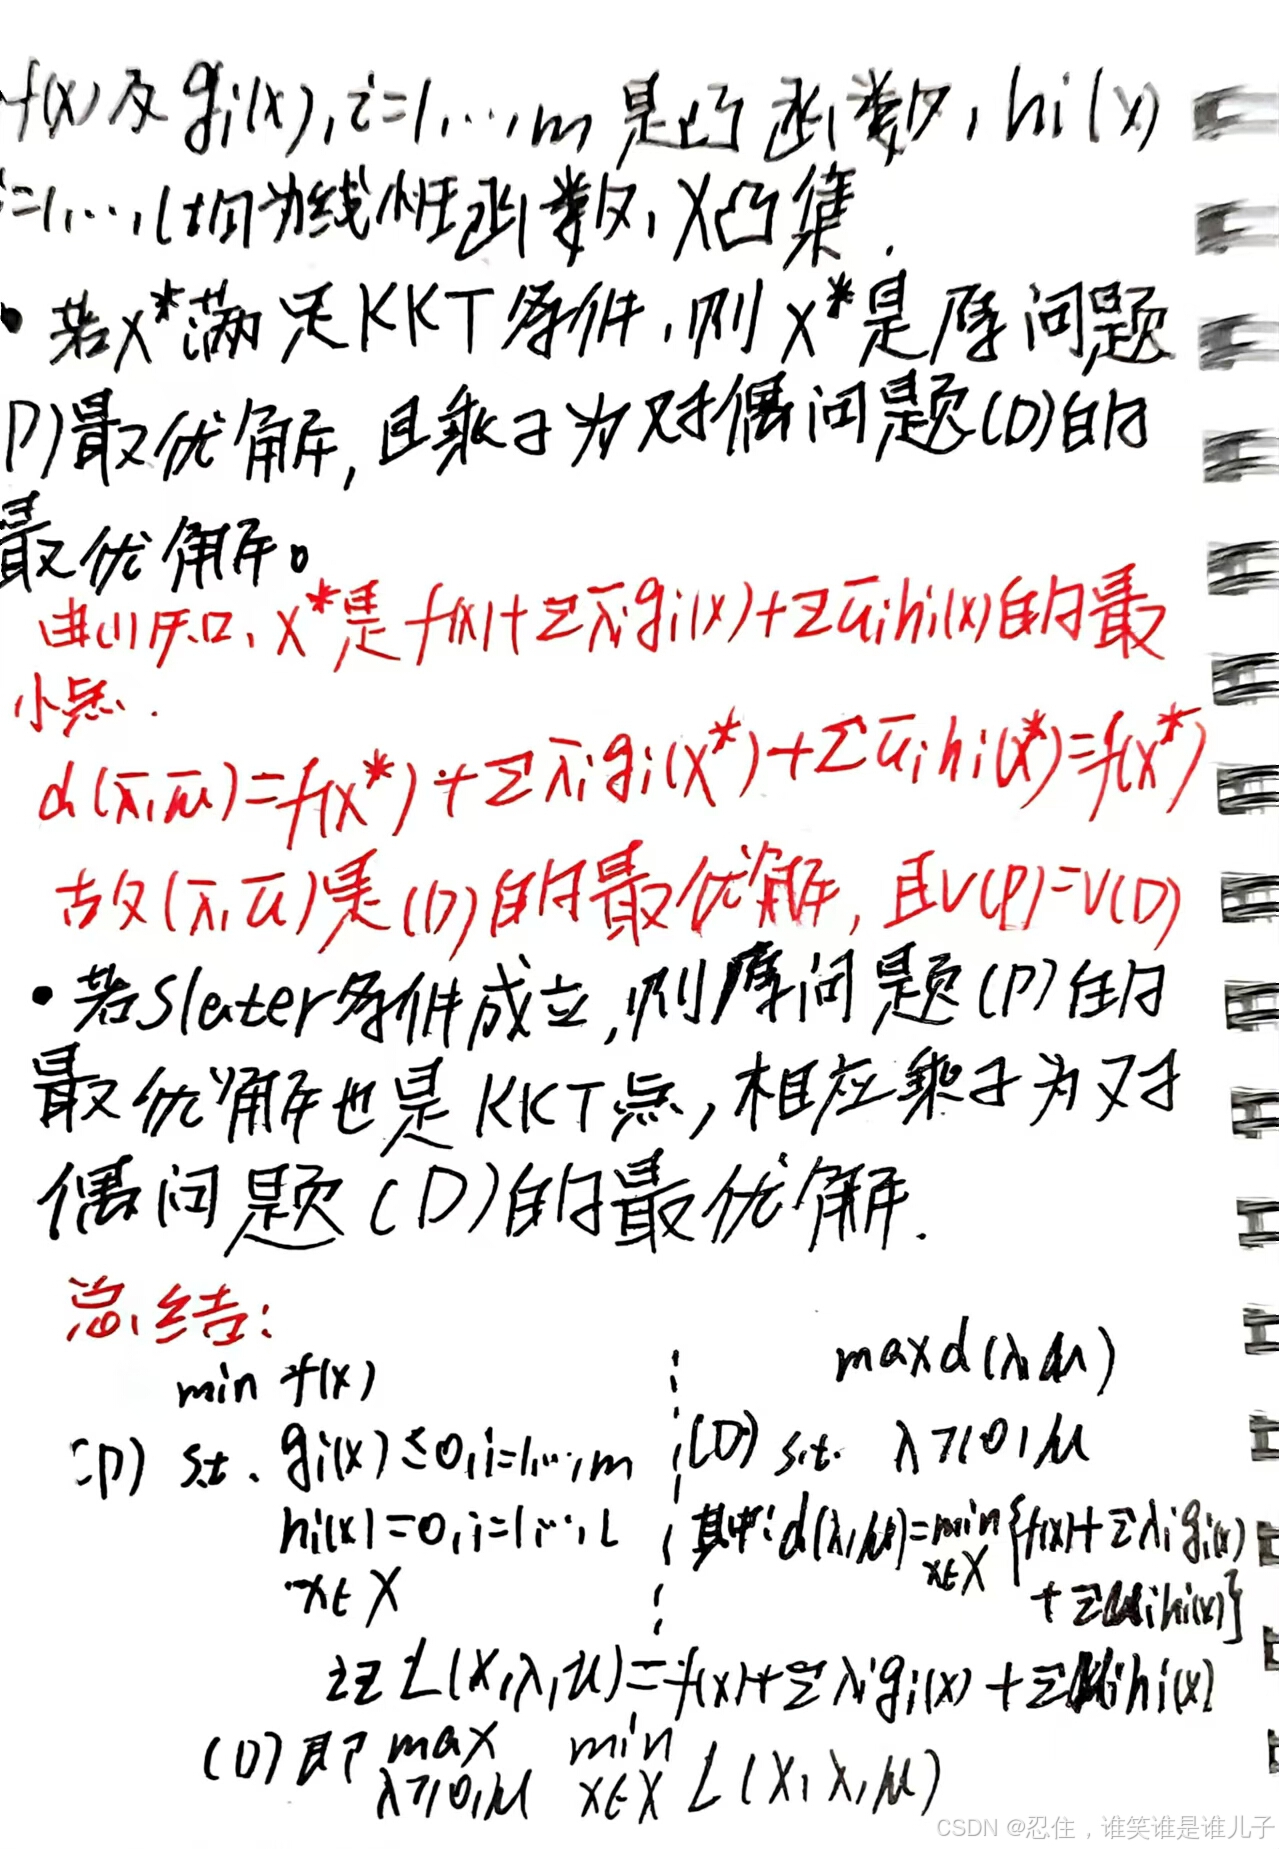 f(x)及gi(x),i=1,…,m是凸函数,hi(x)
i=1,…,l均为线性函数,X凸集.
• 若x*满足KKT条件,则x*是原问题
P)最优解,且乘子为对偶问题(D)的
最优解。
由(1)知,x*是f(x)+Σλ̄igi(x)+Σūihi(x)的最
小点.
d(λ̄,ū)=f(x*)+Σλ̄igi(x*)+Σūihi(x*)=f(x*)
故(λ̄,ū)是(D)的最优解,且v(P)=v(D)
• 若Slater条件成立,则原问题(P)任的
最优解也是KKT点,相应乘子为对
偶问题(D)的最优解.
总结:
min f(x)
(P) s.t. gi(x)≤0,i=1,…,m
hi(x)=0,i=1,…,l
x∈X
max d(λ,μ)
(D) s.t. λ≥0,μ
其中:d(λ,μ)=min{f(x)+Σλigi(x)
x∈X
+Σμihi(x)}
记 L(x,λ,u)=f(x)+Σλigi(x)+Σμihi(x)
(D)即 max min L(x,λ,μ)
λ≥0,μ x∈X
CSDN @忍住，谁笑谁是谁儿子